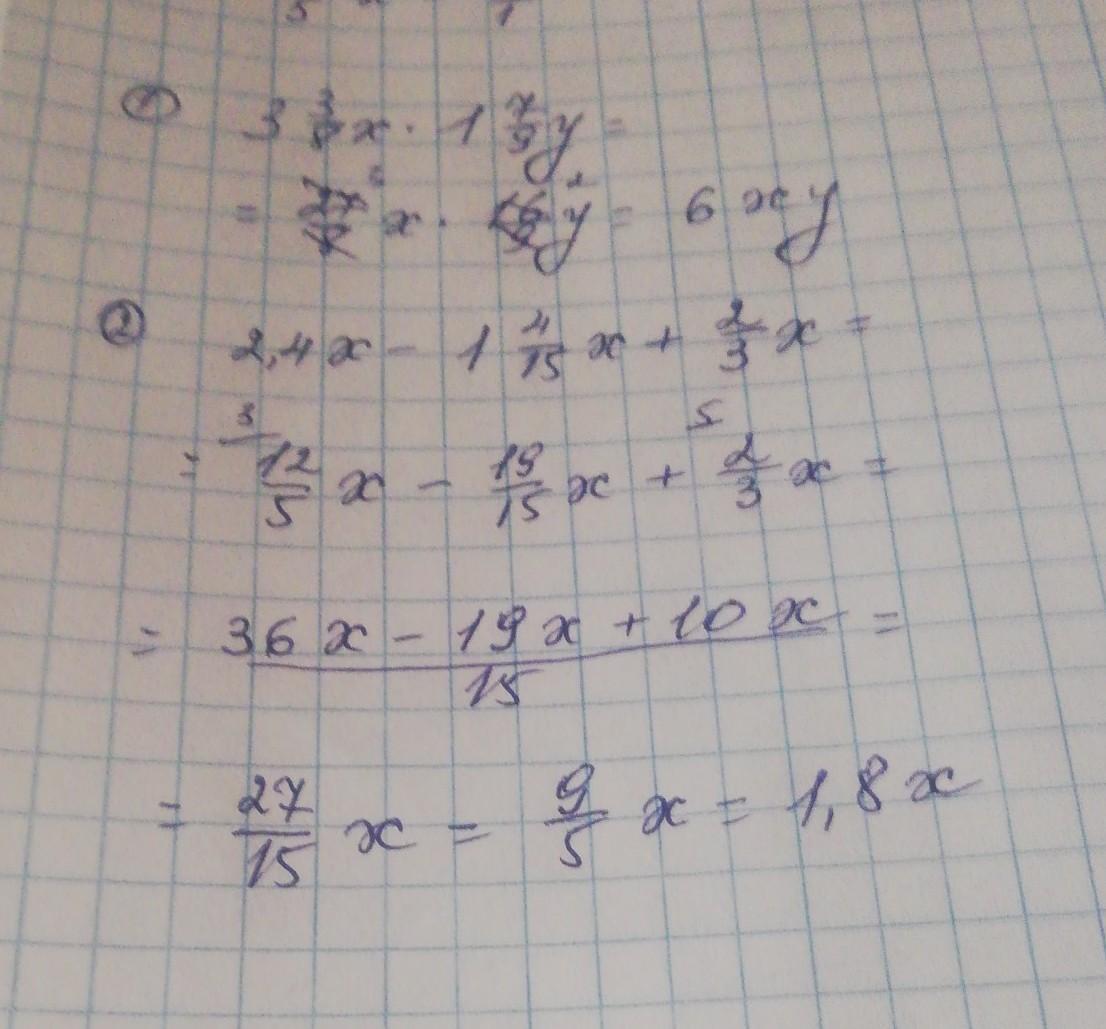 ① 3 3/8 x · 1 7/9 y =
= 27/8 x · 16/9 y = 6xy
② 2,4x - 1 4/15 x + 2/3 x =
= 12/5 x - 19/15 x + 2/3 x =
= 36x - 19x + 10x / 15 =
= 27/15 x = 9/5 x = 1,8x